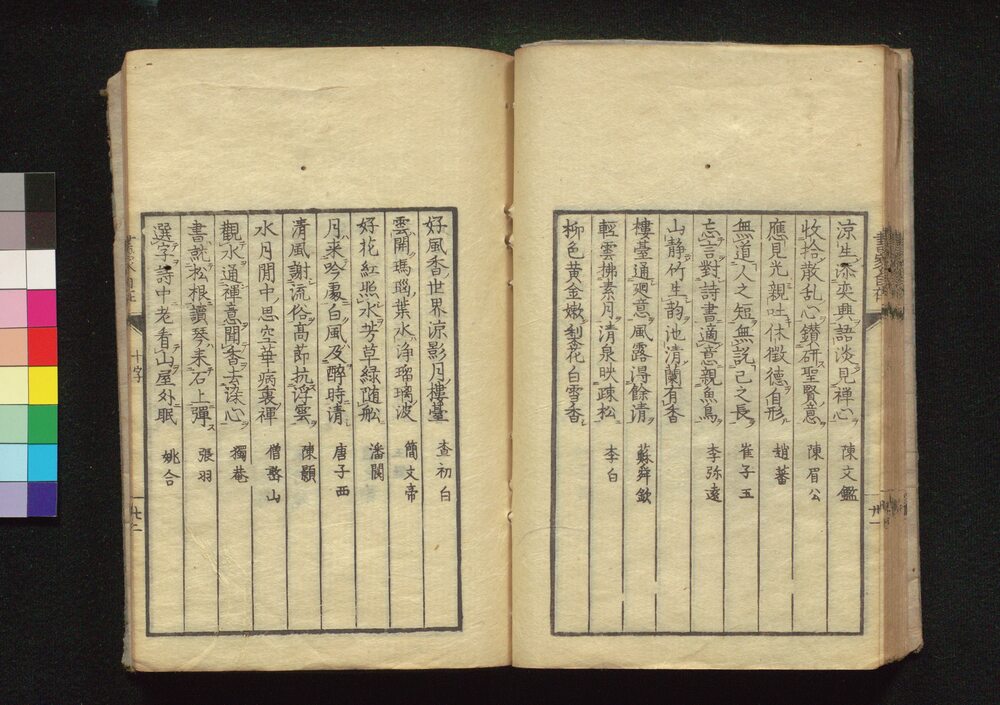 涼生添奕興語淡見禪心 陳文鑑
收拾散乱心鑚研聖賢意 陳眉公
應見光親吐休徴德自形 趙蕃
無道人之短無説己之長 崔子玉
忘言對詩書適意親魚鳥 李弥遠
山静竹生韵池清蘭有香
樓臺通廻意風露得餘清 蘇舜欽
輕雲拂素月清泉映疎松 李白
柳色黄金嫩梨花白雪香
好風香世界涼影月樓臺 查初白
雲開瑪瑙葉水浄瑠璃波 簡文帝
好花紅照水芳草緑随船 潘閬
月来吟處白風及醉時清 唐子西
清風謝流俗高節抗浮雲 陳顥
水月閒中思空華病裏禪 僧憨山
觀水通禪意聞香去染心 獨菴
書就松根讀琴来石上彈 張羽
選字詩中老看山屋外眠 姚合
十字
七二